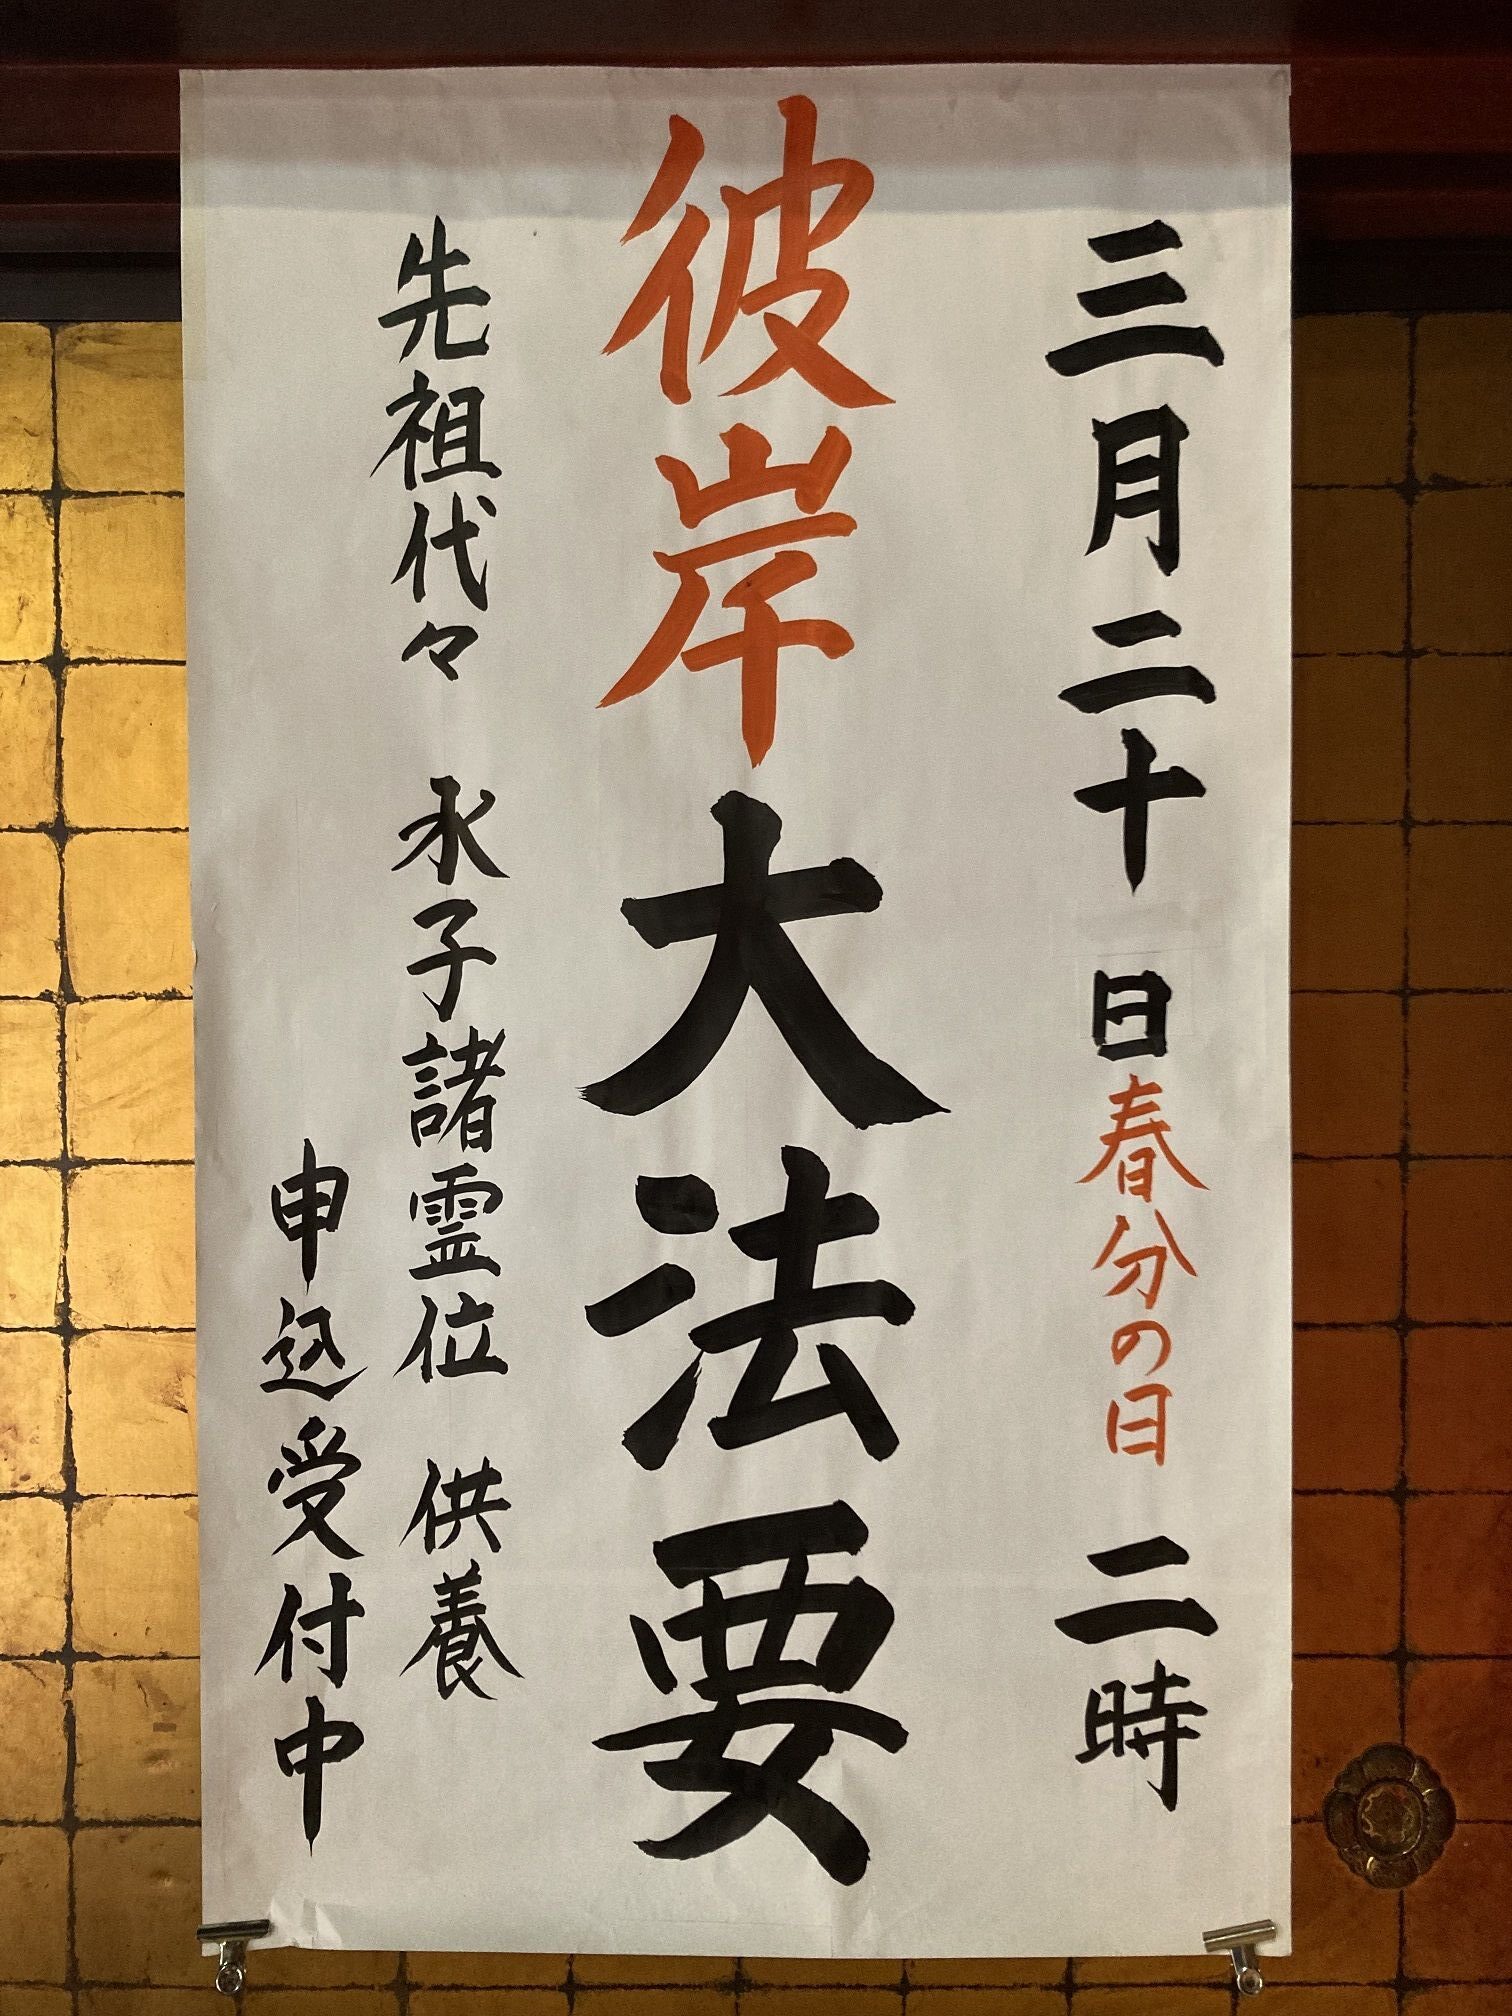 三月二十日春分の日 二時
彼岸大法要
先祖代々 水子諸霊位 供養
申込受付中